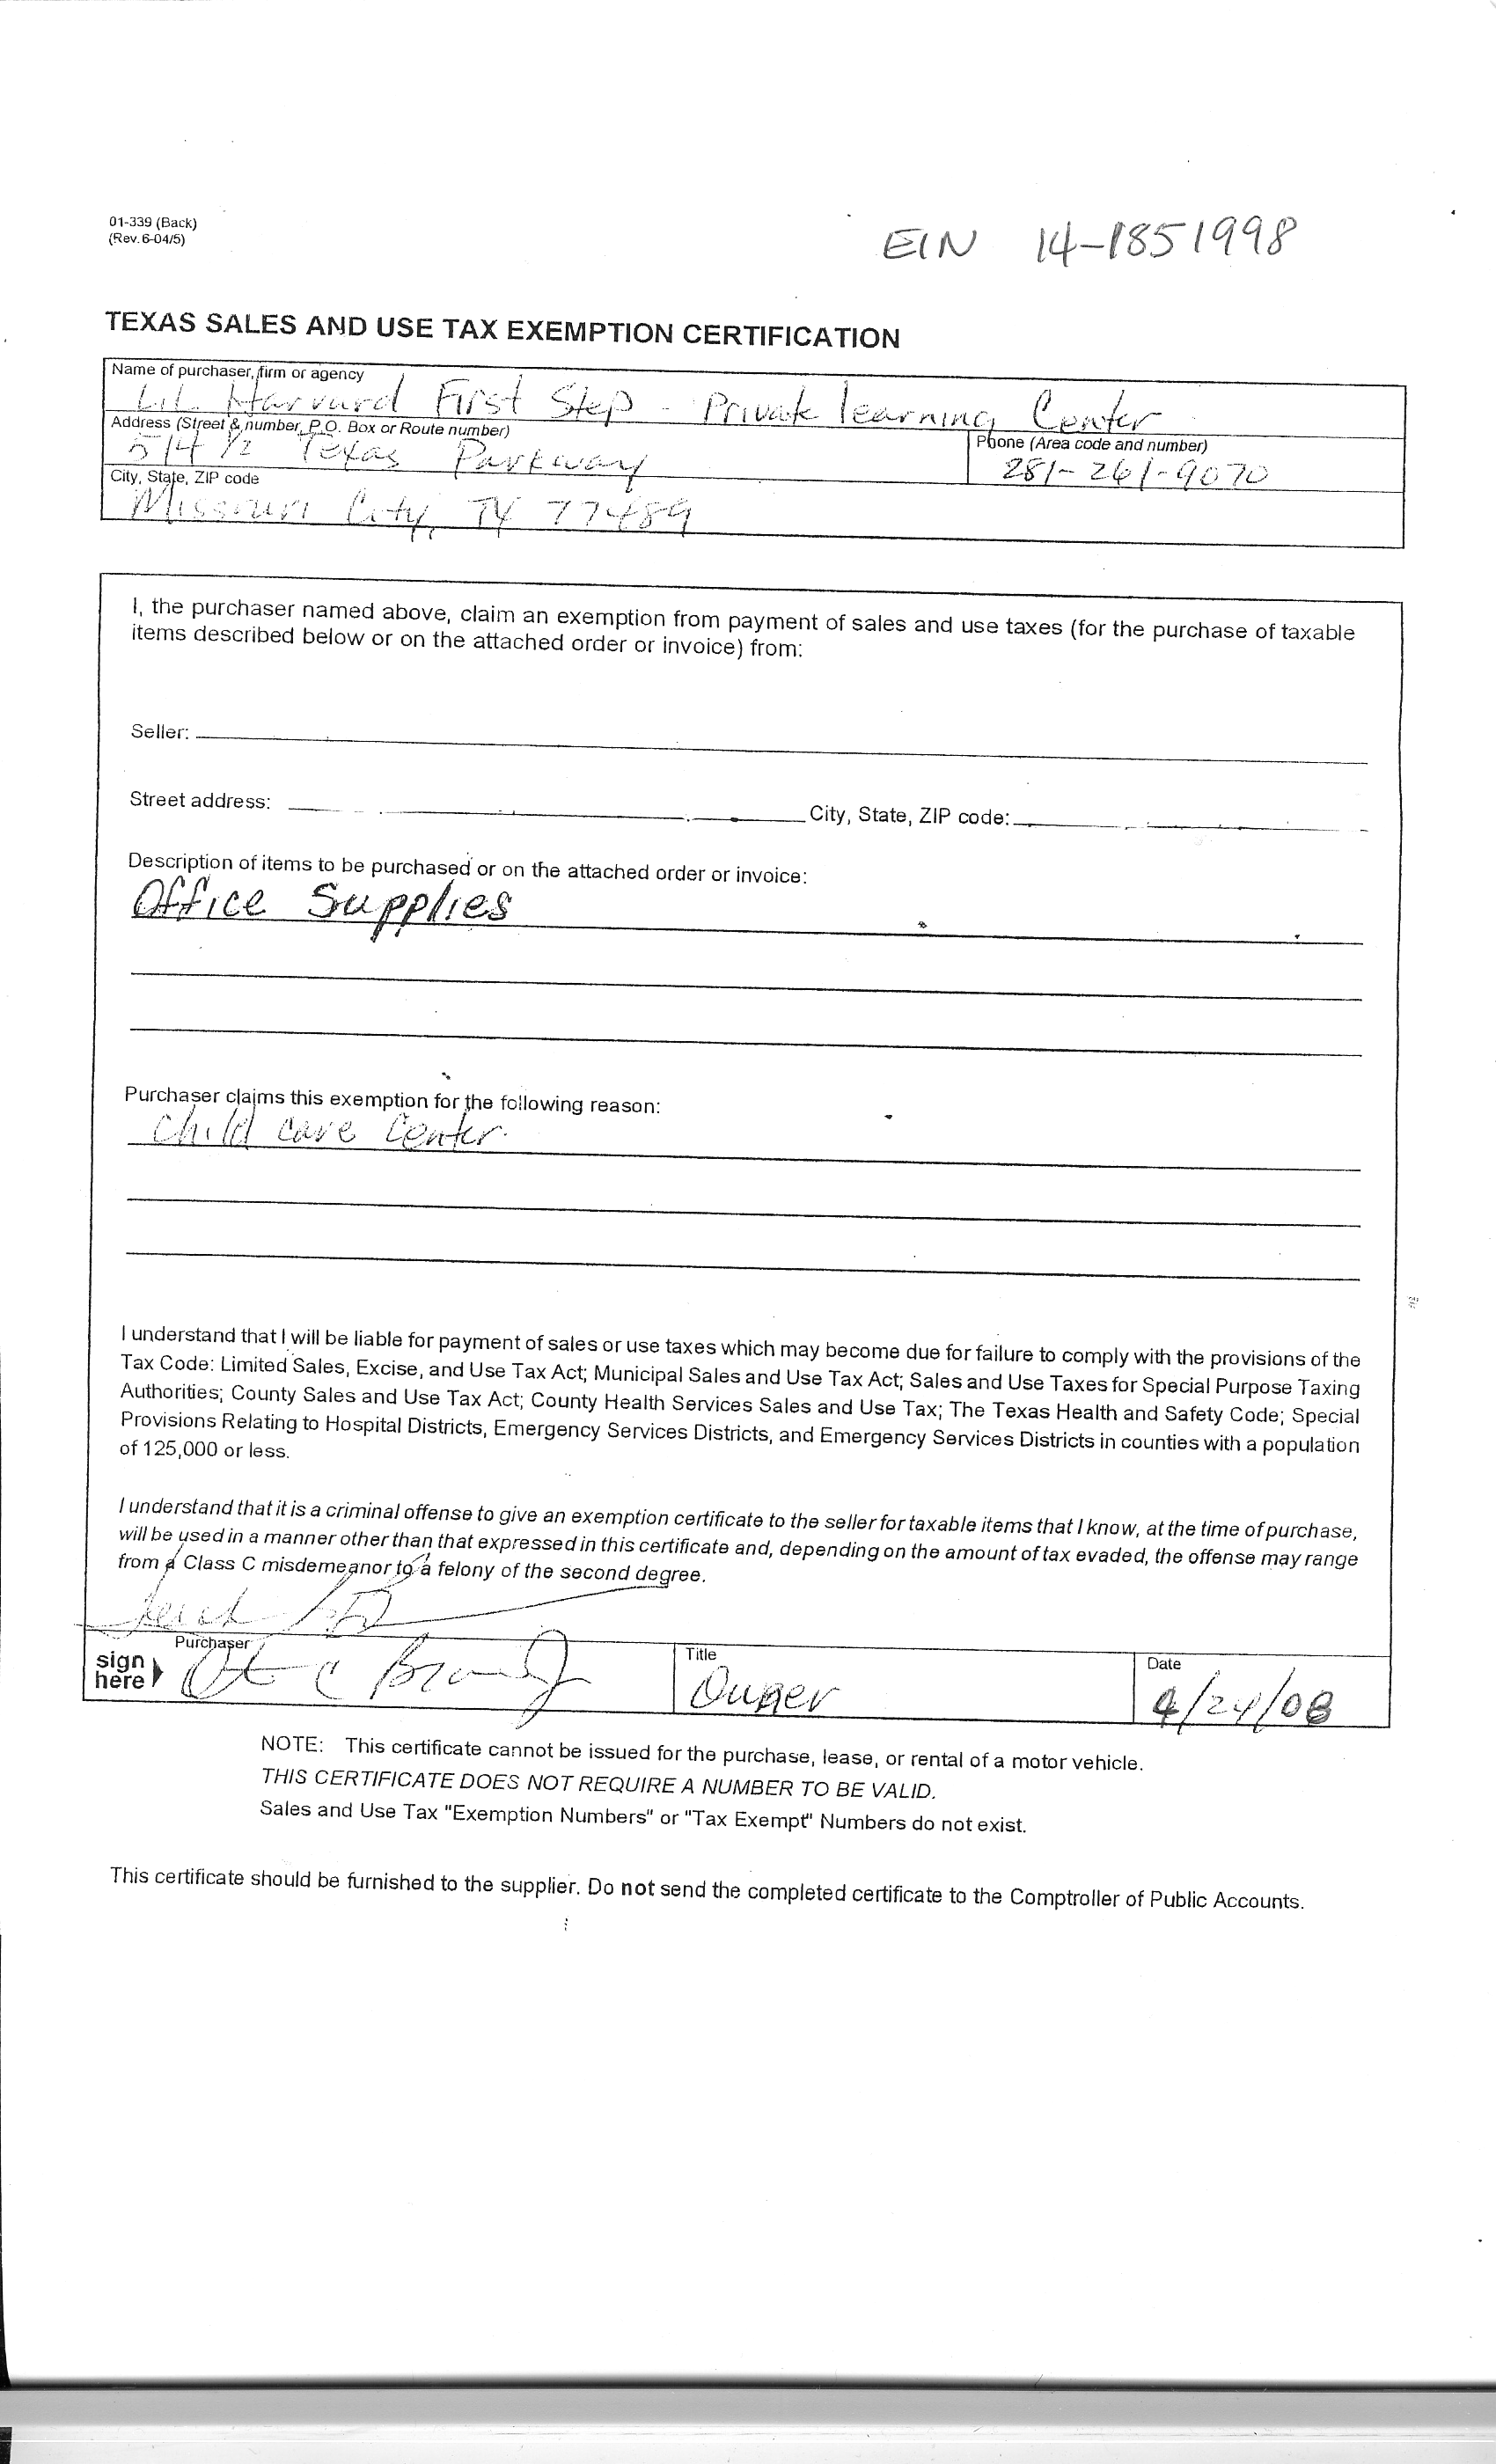 01-339 (Back)
(Rev.6-04/5)
EIN 14-1851998
TEXAS SALES AND USE TAX EXEMPTION CERTIFICATION
Name of purchaser, firm or agency
Lil. Harvard First Step - Private learning Center
Address (Street & number, P.O. Box or Route number)
Phone (Area code and number)
514 1/2 Texas Parkway
281-261-9070
City, State, ZIP code
Missouri City, TX 77489
I, the purchaser named above, claim an exemption from payment of sales and use taxes (for the purchase of taxable
items described below or on the attached order or invoice) from:
Seller:
Street address: City, State, ZIP code:
Description of items to be purchased or on the attached order or invoice:
Office Supplies
Purchaser claims this exemption for the following reason:
Child care Center.
I understand that I will be liable for payment of sales or use taxes which may become due for failure to comply with the provisions of the
Tax Code: Limited Sales, Excise, and Use Tax Act; Municipal Sales and Use Tax Act; Sales and Use Taxes for Special Purpose Taxing
Authorities; County Sales and Use Tax Act; County Health Services Sales and Use Tax; The Texas Health and Safety Code; Special
Provisions Relating to Hospital Districts, Emergency Services Districts, and Emergency Services Districts in counties with a population
of 125,000 or less.
I understand that it is a criminal offense to give an exemption certificate to the seller for taxable items that I know, at the time of purchase,
will be used in a manner other than that expressed in this certificate and, depending on the amount of tax evaded, the offense may range
from a Class C misdemeanor to a felony of the second degree.
Purchaser
Title
Date
sign
here
Owner
4/24/08
NOTE: This certificate cannot be issued for the purchase, lease, or rental of a motor vehicle.
THIS CERTIFICATE DOES NOT REQUIRE A NUMBER TO BE VALID.
Sales and Use Tax "Exemption Numbers" or "Tax Exempt" Numbers do not exist.
This certificate should be furnished to the supplier. Do not send the completed certificate to the Comptroller of Public Accounts.